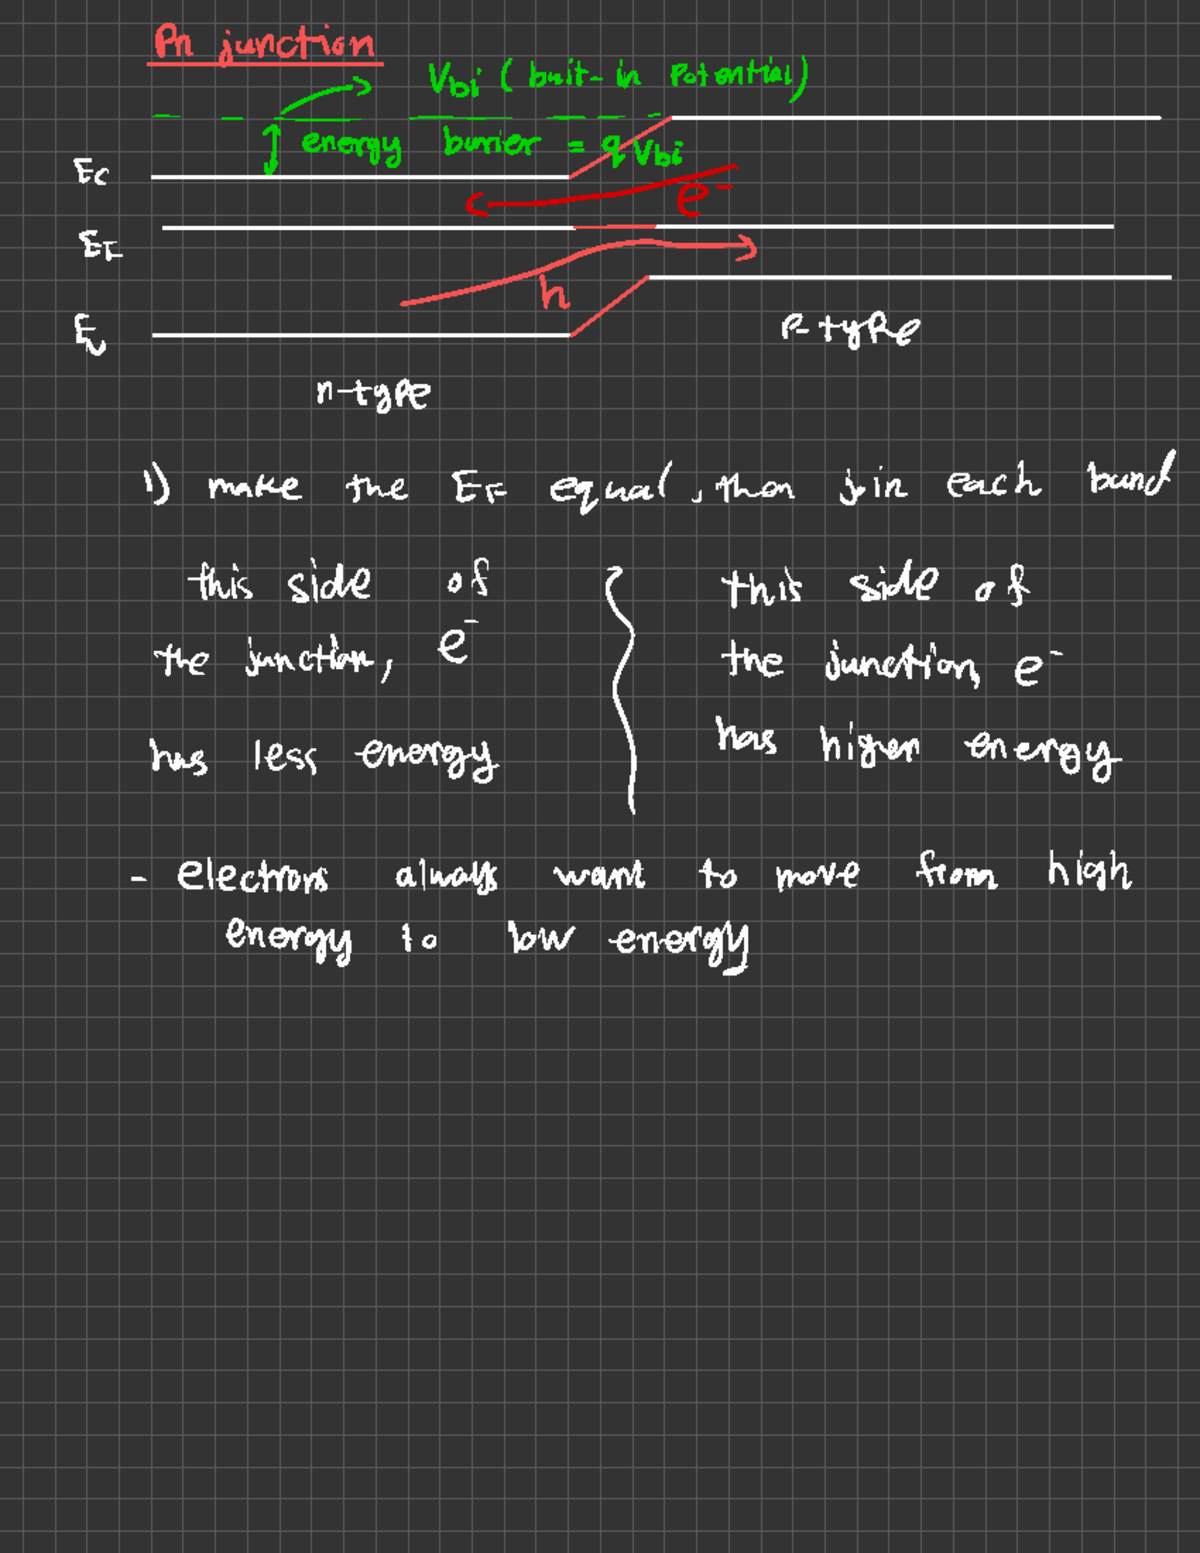 Pn junction
Vbi (buit-in Potential)
energy barrier = q Vbi
Ec
e-
EF
h
Ev
P-type
n-type
1) make the EF equal, then join each band
this side of
the junction, e-
has less energy
this side of
the junction, e-
has higher energy
- electrons always want to move from high
energy to low energy